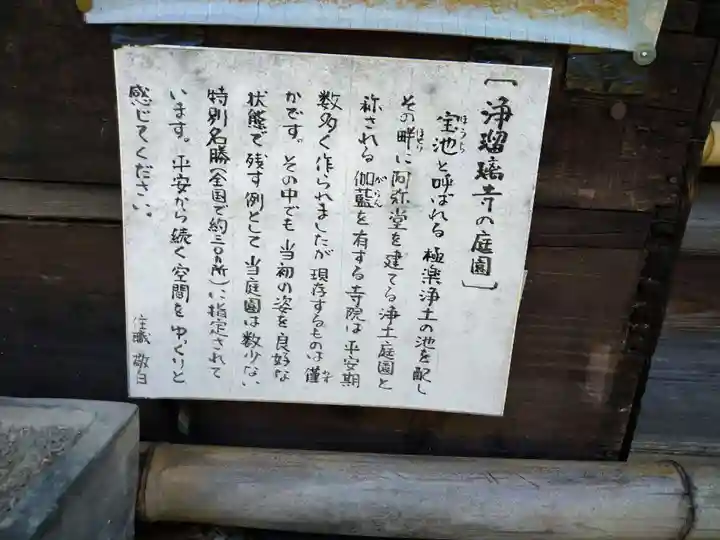 【浄瑠璃寺の庭園】
宝池と呼ばれる 極楽浄土の池を配し
その畔に阿弥堂を建てる浄土庭園と
称される 伽藍を有する寺院は 平安期
数多く作られましたが 現存するものは 僅
かです。その中でも 当初の姿を良好な
状態で残す例として 当庭園は数少ない
特別名勝(全国で約三〇ヵ所)に指定されて
います。平安から続く空間を ゆっくりと
感じてください。
住職 敬白